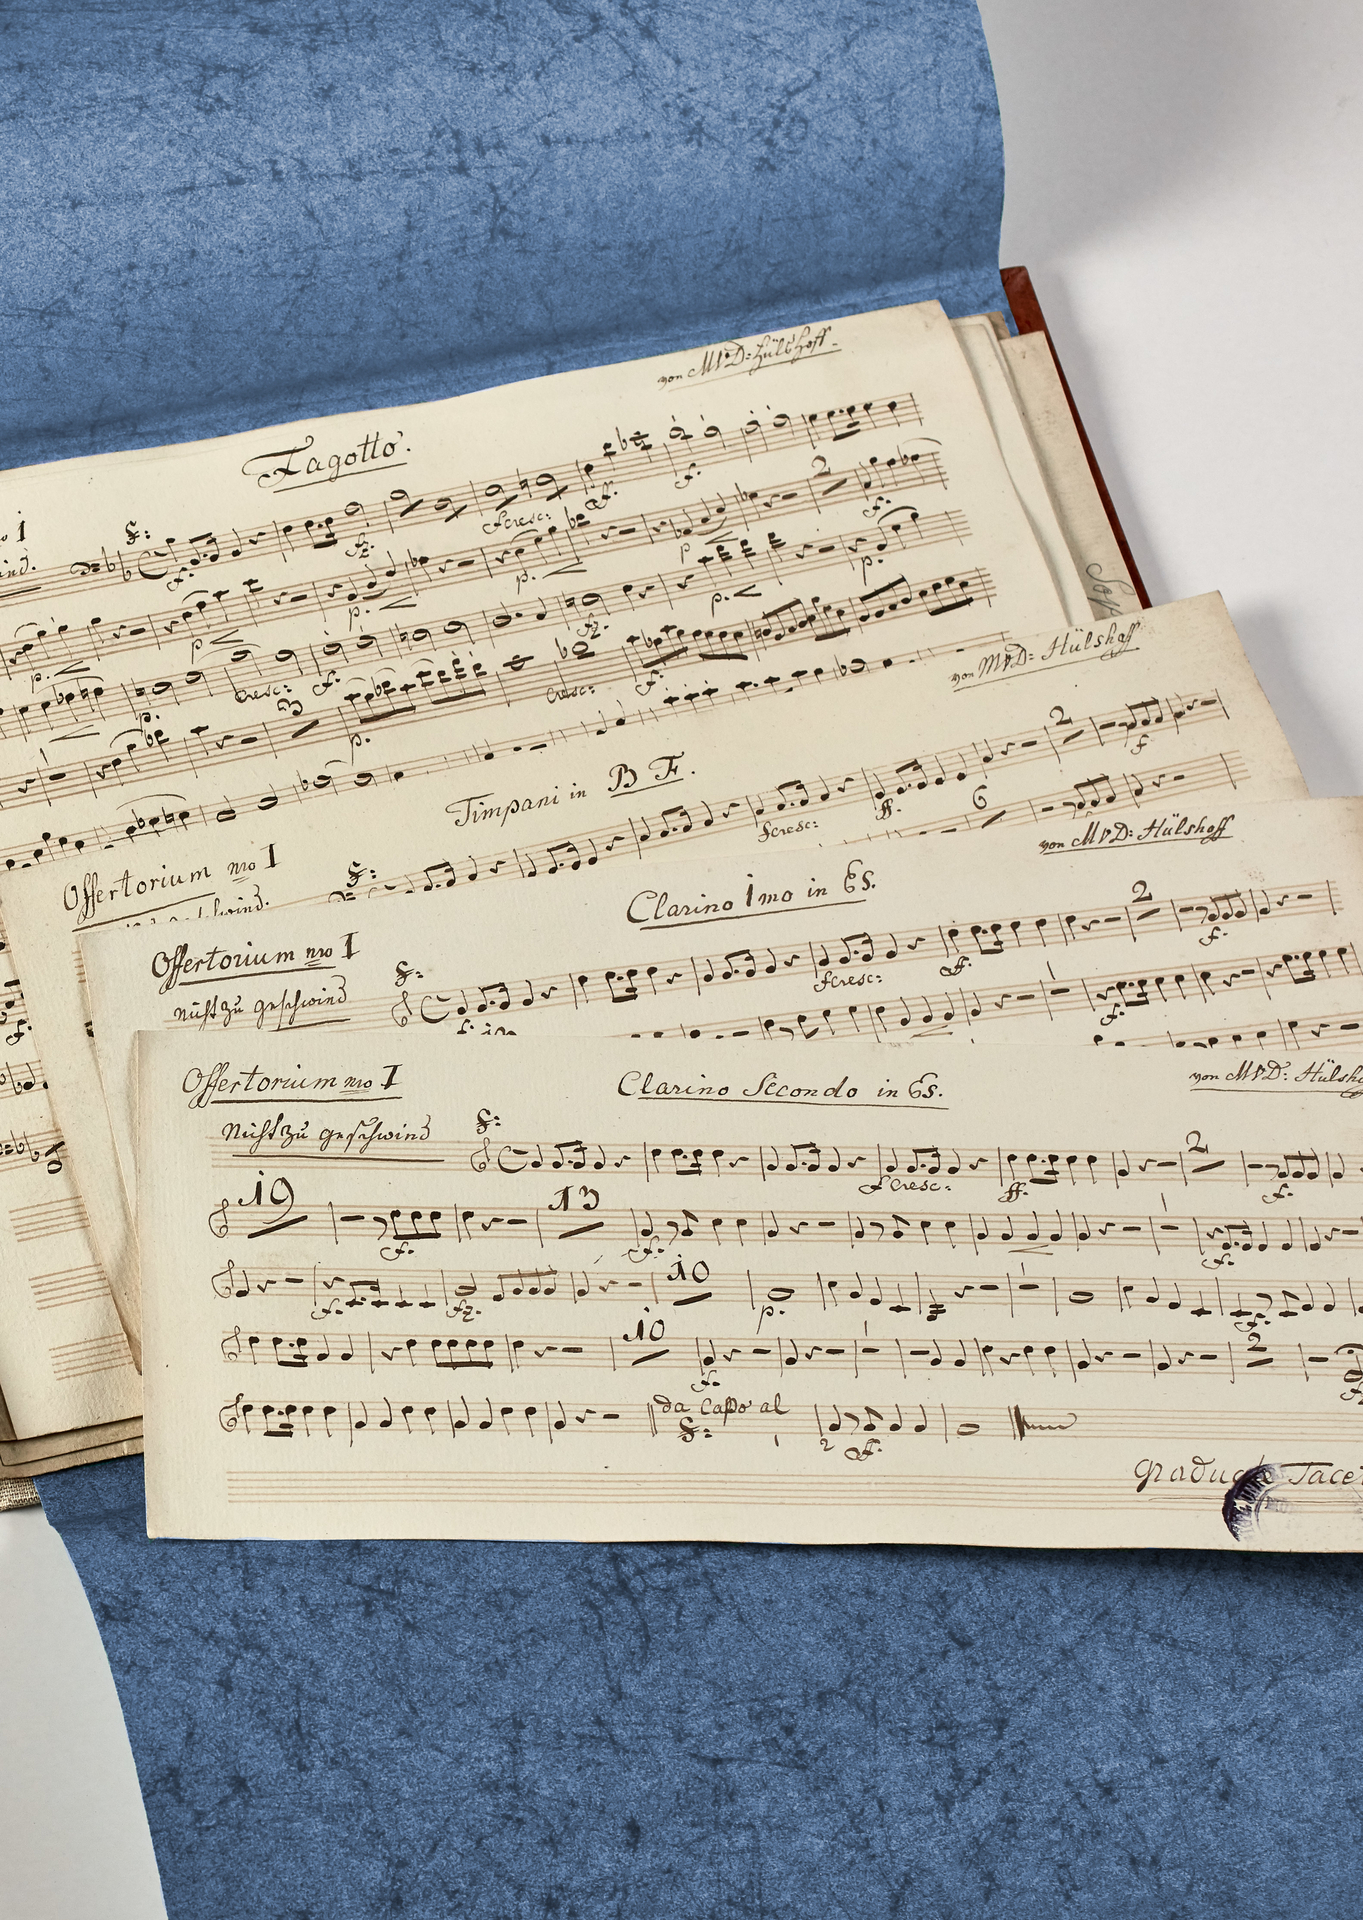 von MVD: Hülshoff.
Fagotto.
I
cresc:
ff.
f.
2
f.
f.
fz.
p. <
p. <
p. <
p.
p. <
p. <
cresc: f.
fz.
p.
p.
3
p.
cresc:
f.
von MVD: Hülshoff
Timpani in B F.
Offertorium nro I
geschwind.
cresc:
ff.
2
f.
6
von MVD: Hülshoff
Clarino 1mo in Es.
Offertorium nro I
nicht zu geschwind
cresc:
ff.
2
f.
f.
von MVD: Hülsho
Offertorium nro I
Clarino Secondo in Es.
Nicht zu geschwind
cresc:
ff.
2
f.
19
f.
13
f.
f.
f.
fz.
10
p.
f.
10
f.
2
f.
da Capo al
2
f.
Graduale Tacet